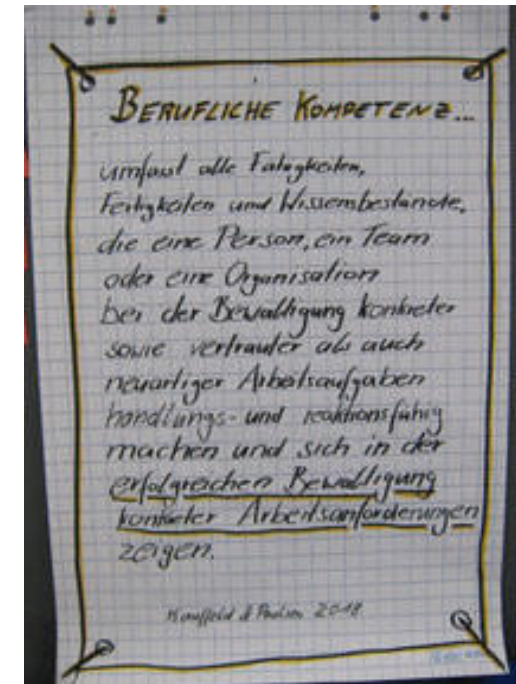 BERUFLICHE KOMPETENZ...
umfasst alle Fähigkeiten,
Fertigkeiten und Wissensbestände,
die eine Person, ein Team
oder eine Organisation
bei der Bewältigung konkreter
sowie vertrauter als auch
neuartiger Arbeitsaufgaben
handlungs- und reaktionsfähig
machen und sich in der
erfolgreichen Bewältigung
konkreter Arbeitsanforderungen
zeigen.
Kauffeld & Paulsen 2018